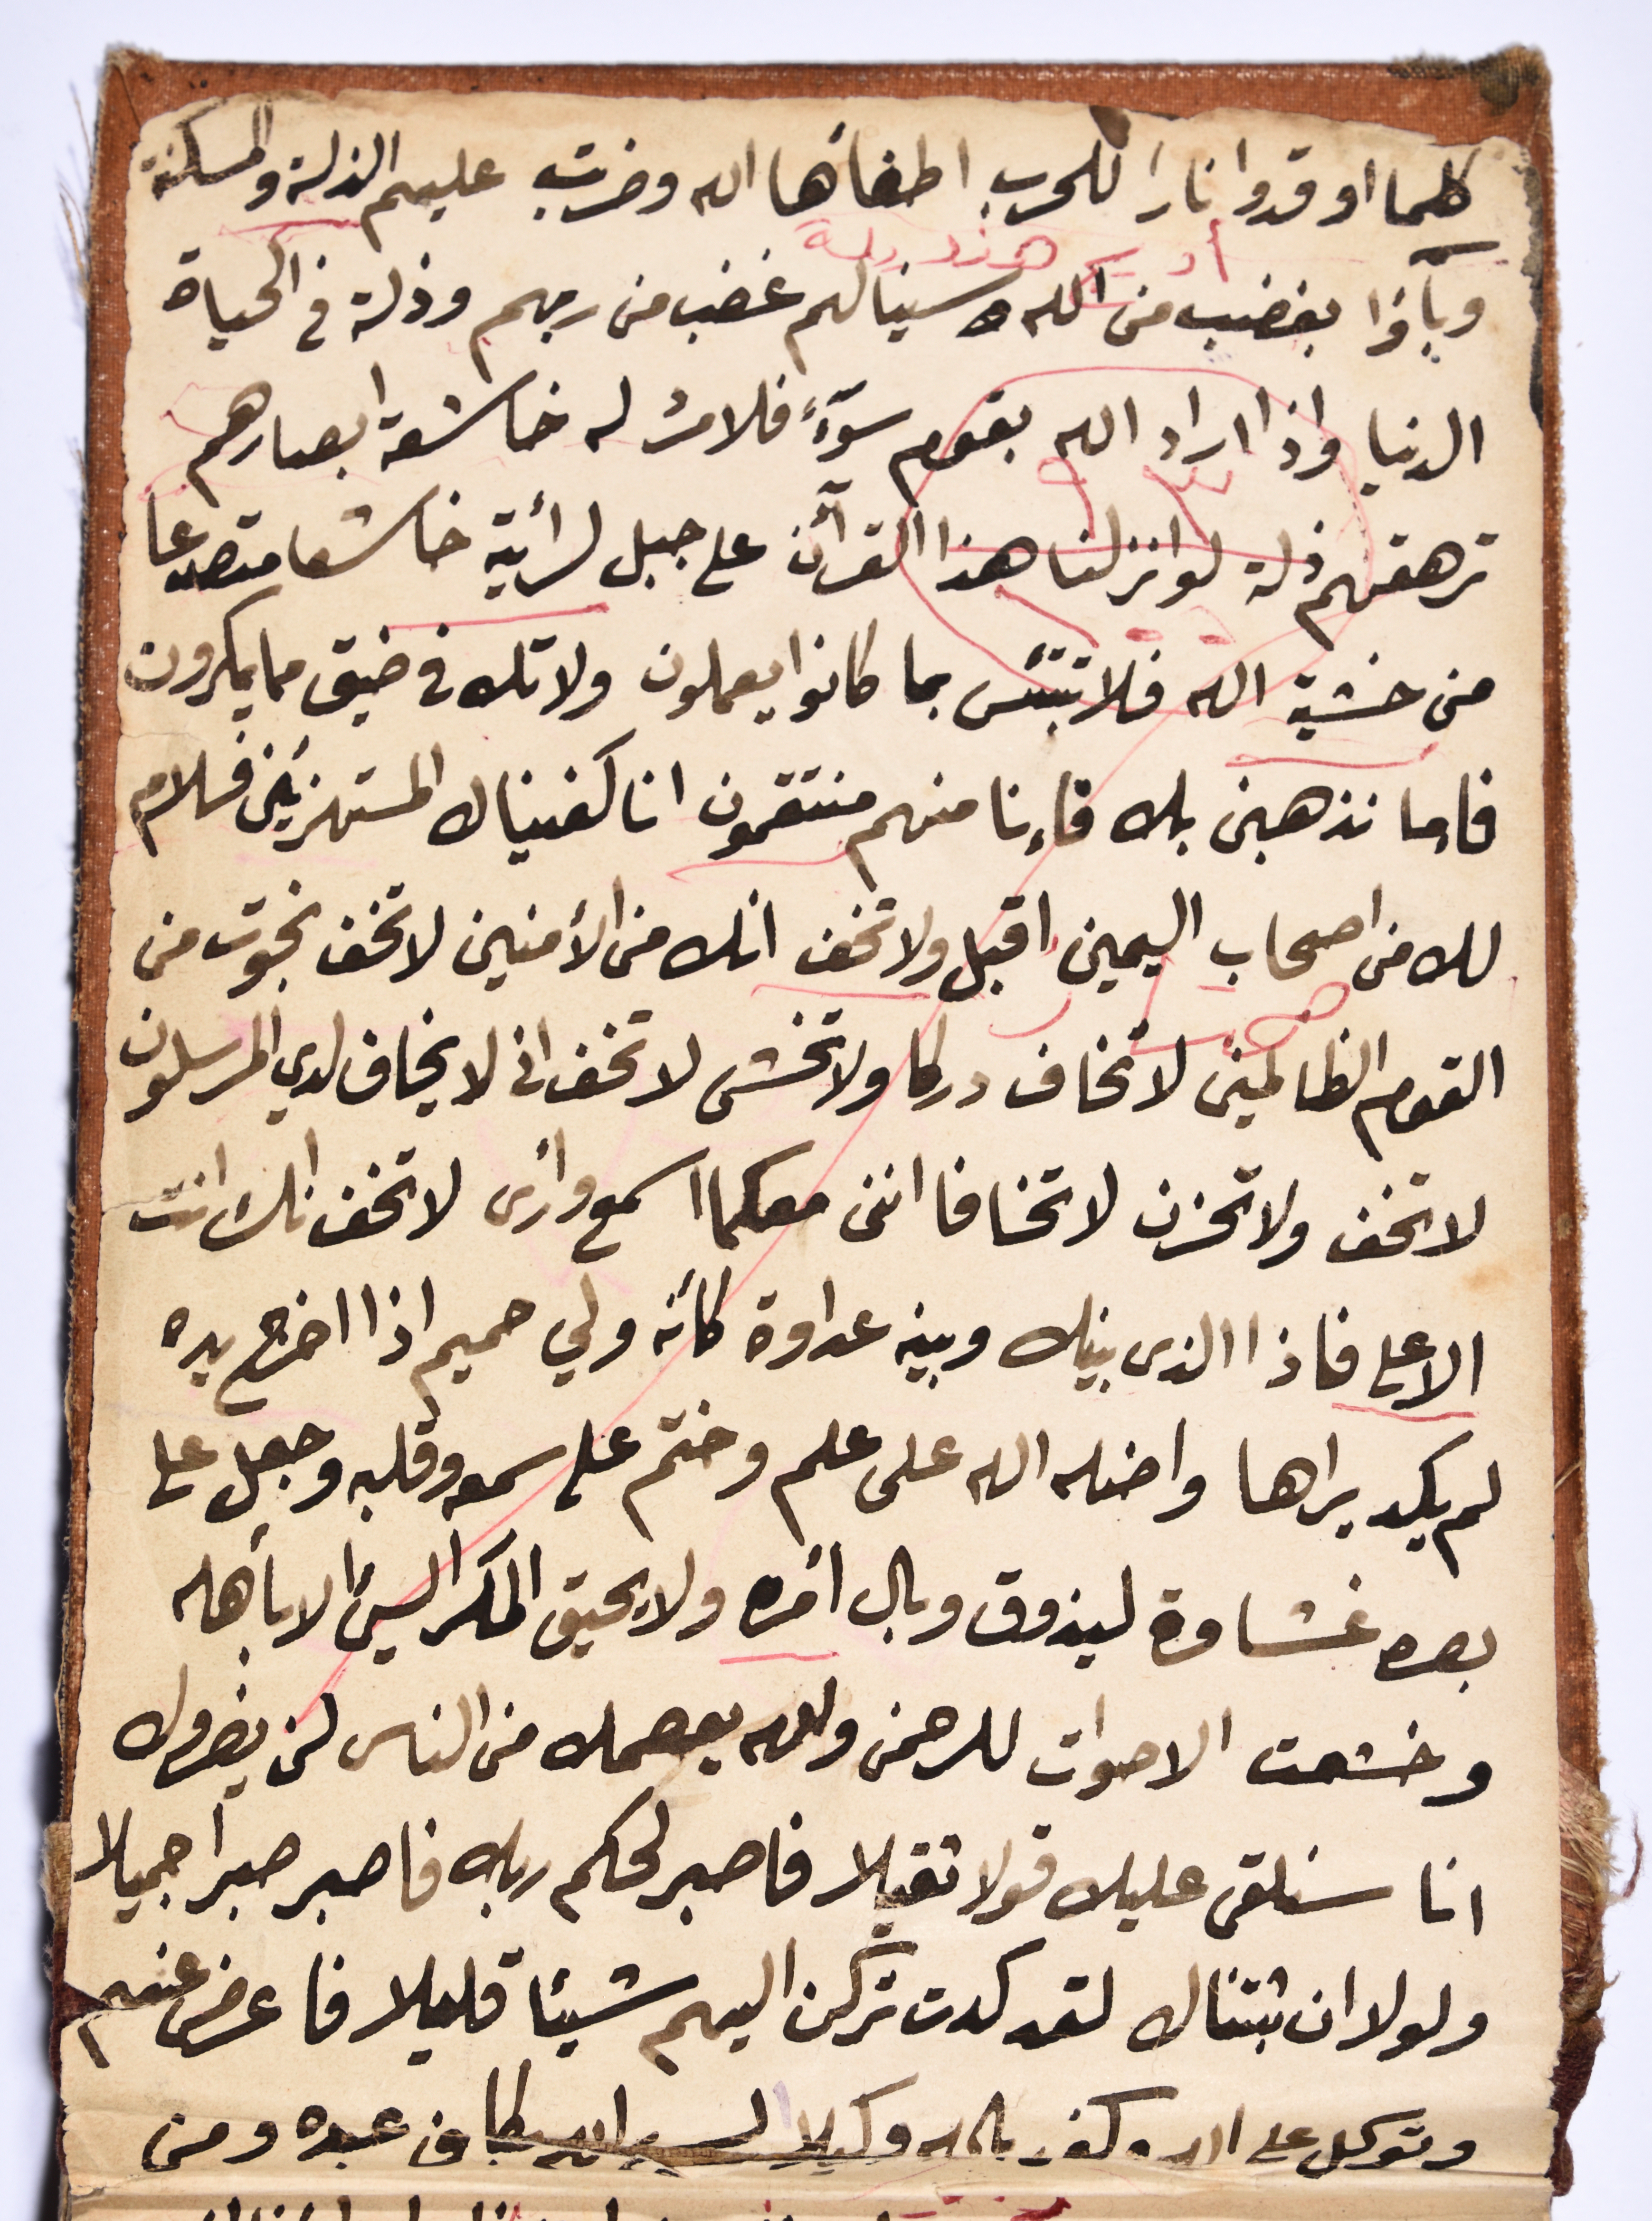 كلما اوقدوا نارا للحرب اطفأها الله وضربت عليهم الذلة والمسكنة
وبآؤا بغضب من الله سينالهم غضب من ربهم وذلة في الحياة
الدنيا واذا اراد الله بقوم سوٓءً فلا مرد له خاشعة ابصارهم
ترهقهم ذلة لو انزلنا هذا القرآن على جبل لرأيته خاشعا متصدعا
من خشية الله فلا تبتئس بما كانوا يعملون ولا تك في ضيق مما يمكرون
فاما نذهبن بك فإنا منهم منتقمون انا كفيناك المستهزئين فسلام
لك من اصحاب اليمين اقبل ولا تخف انك من الأمنين لا تخف نجوت من
القوم الظالمين لا تخاف دركا ولا تخشى لا تخف انى لا يخاف لدي المرسلون
لا تخف ولا تحزن لا تخافا اننى معكما اسمع وأرى لا تخف انك انت
الاعلى فاذا الذى بينك وبينه عداوة كأنه ولي حميم اذا اخرج يده
لم يكد يراها واضله الله على علم وختم على سمعه وقلبه وجعل على
بصره غشاوة ليذوق وبال أمره ولا يحيق المكر السيئ الا بأهله
وخشعت الاصوات للرحمن والله يعصمك من الناس لن يضروك
انا سنلقى عليك قولا ثقيلا فاصبر لحكم ربك فاصبر صبرا جميلا
ولولا ان ثبتناك لقد كدت تركن اليهم شيئا قليلا فاعرض عنهم
وتوكل على الله وكفى بالله وكيلا اليس الله بكاف عبده ومن